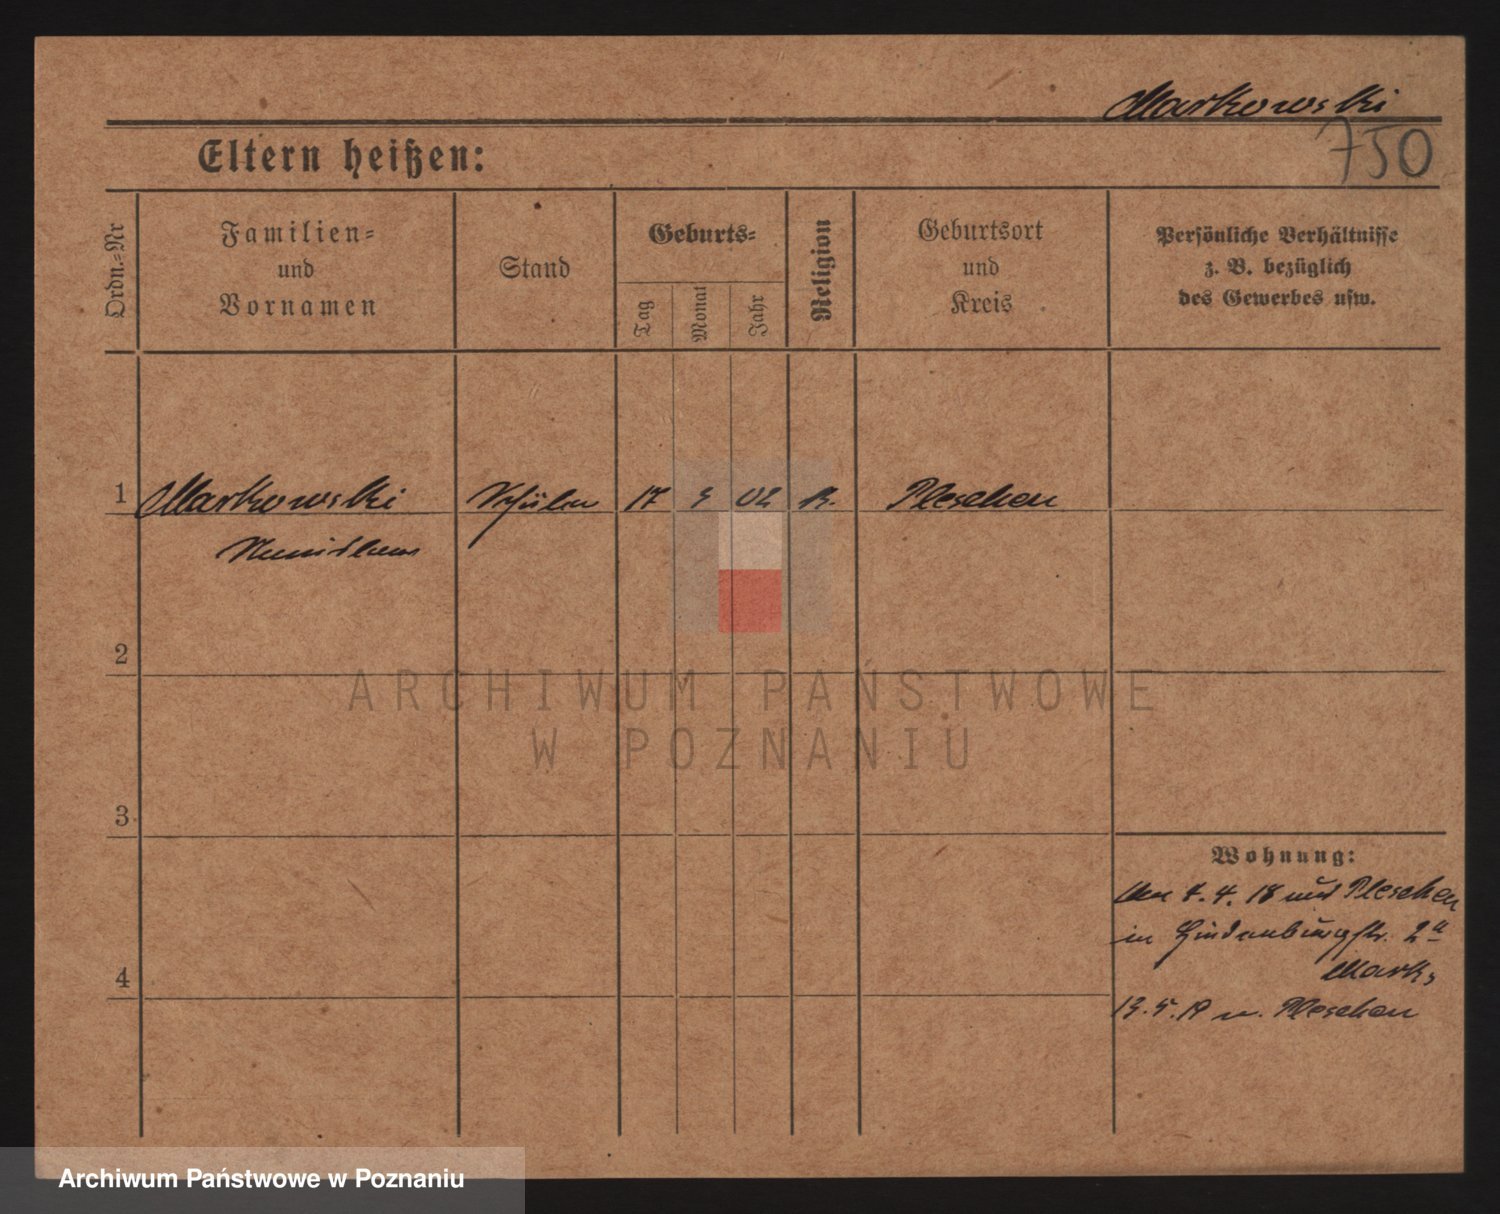 Markowski
750
Eltern heißen:
Ordn.-Nr
Familien-
und
Vornamen
Stand
Geburts-
Tag
Monat
Jahr
Religion
Geburtsort
und
Kreis
Persönliche Verhältnisse
z. B. bezüglich
des Gewerbes usw.
1 Markowski Schüler 17 02 Pleschen
2
3
4
Wohnung:
4. 18 Pleschen
in Hindenburgstr. 2a
Mark.
13. 5. 19 n. Pleschen
ARCHIWUM PAŃSTWOWE
W POZNANIU
Archiwum Państwowe w Poznaniu